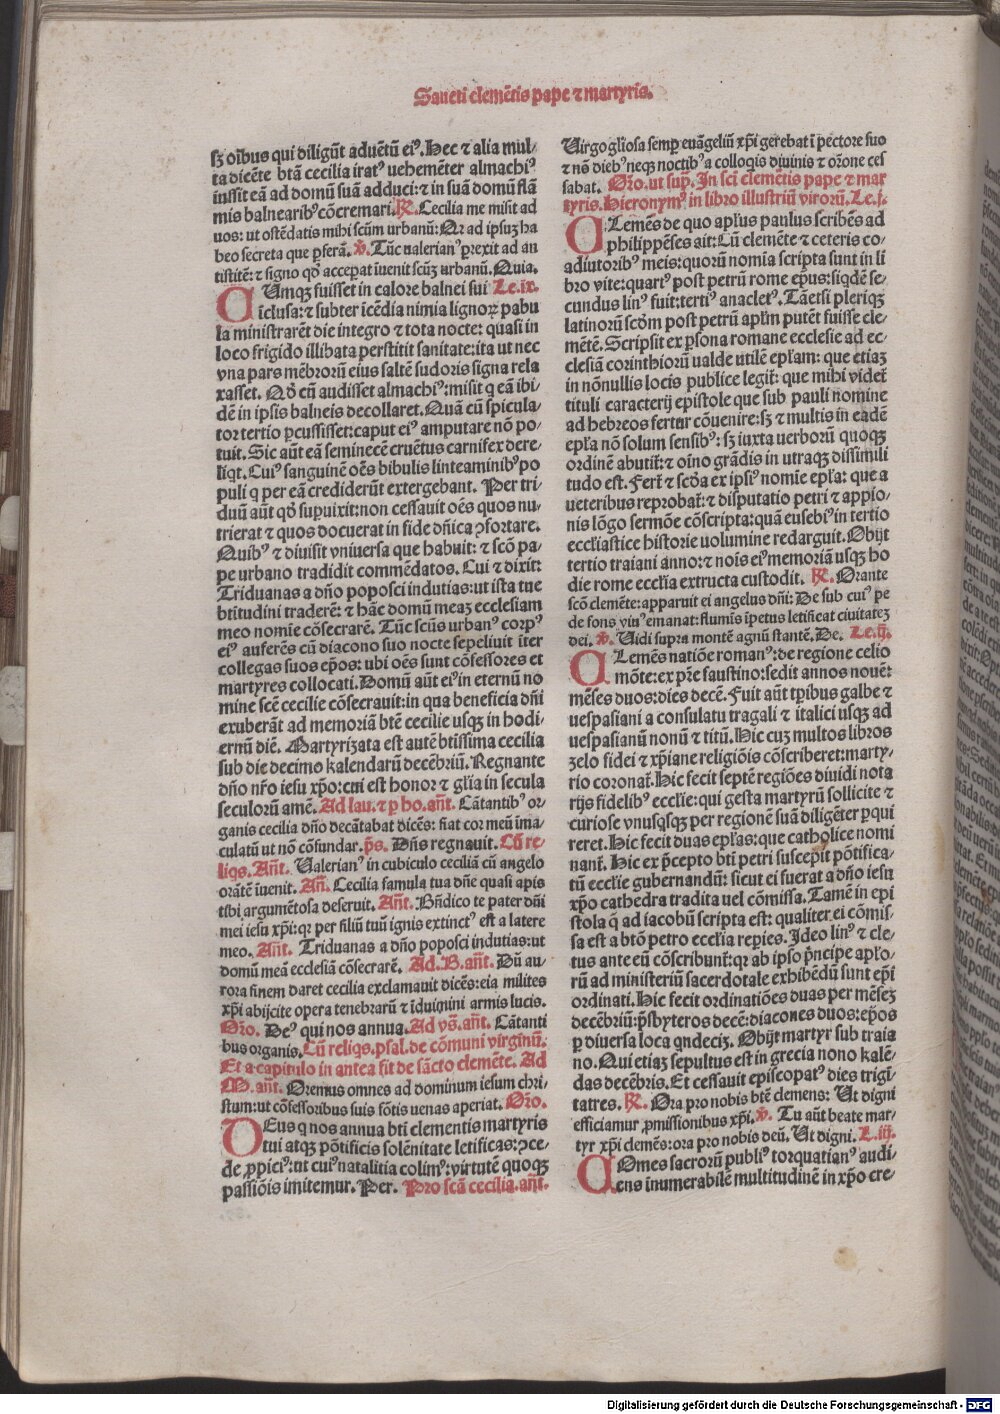 Sancti clemētis pape ⁊ martyris.
sꝫ oībus qui diligūt aduētū eiꝰ. Hec ⁊ alia mul⸗
ta dicēte btā cecilia iratꝰ uehemēter almachiꝰ
iussit eā ad domū suā adduci: ⁊ in suā domū flā
mis balnearibꝰ cōcremari. ℟. Cecilia me misit ad
uos: ut ostēdatis mihi scūm urbanū: Nr̄ ad ipsuꝫ ha
beo secreta que ꝑferā. ℣. Tūc ualerianꝰ ꝑrexit ad an
tistitē: ⁊ signo qd̓ acceꝑat īuenit scūꝫ urbanū. Quia.
CUmqꝫ fuisset in calore balnei sui Le.ix.
īclusa: ⁊ subter īcēdia nimia lignoꝝ pabu
la ministrarēt die integro ⁊ tota nocte: quasi in
loco frigido illibata ꝑstitit sanitate: ita ut nec
vna pars mēbrorū eius saltē sudoris signa rela
xasset. Qd̓ cū audisset almachiꝰ: misit q eā ibi⸗
dē in ipsis balneis decollaret. Quā cū spicula⸗
tor tertio ꝑcussisset: caput eiꝰ amputare nō po⸗
tuit. Sic aūt eā seminecē cruētus carnifex dere⸗
liqt. Cuiꝰ sanguinē oēs bibulis linteaminibꝰ po
puli q per eā crediderūt extergebant. Per tri⸗
duū aūt qd̓ suꝑuixit: non cessauit oēs quos nu⸗
trierat ⁊ quos docuerat in fide dn̄ica ꝯfortare.
Quibꝰ ⁊ diuisit vniuersa que habuit: ⁊ scō pa⸗
pe urbano tradidit commēdatos. Cui ⁊ dixit:
Triduanas a dn̄o poposci indutias: ut ista tue
btītudini traderē: ⁊ hāc domū meaꝫ ecclesiam
meo nomīe cōsecrarē. Tūc scūs urbanꝰ corpꝰ
eiꝰ auferēs cū diacono suo nocte sepeliuit īter
collegas suos ep̄os: ubi oēs sunt cōfessores et
martyres collocati. Domū aūt eiꝰ in eternū no
mine scē cecilie cōsecrauit: in qua beneficia dn̄i
exuberāt ad memoriā btē cecilie usqꝫ in hodi⸗
ernū diē. Martyrizata est autē btīssima cecilia
sub die decimo kalendarū decēbriū. Regnante
dn̄o nr̄o iesu xp̄o: cui est honor ⁊ gl̄ia in secula
seculorū amē. Ad lau. ⁊ ꝑ ho. an̄t. Cātantibꝰ or⸗
ganis cecilia dn̄o decātabat dicēs: fiat cor meū īma⸗
culatū ut nō cōfundar. p̄s. Dn̄s regnauit. Cū re⸗
liqs. An̄t. Ualerianꝰ in cubiculo ceciliā cū angelo
orātē īuenit. An̄. Cecilia famula tua dn̄e quasi apis
tibi argumētosa deseruit. An̄t. Bn̄dico te pater dn̄i
mei iesu xp̄i: qꝛ per filiū tuū ignis extinctꝰ est a latere
meo. An̄t. Triduanas a dn̄o poposci indutias: ut
domū meā ecclesiā cōsecrarē. Ad. B. an̄t. Dū au⸗
rora finem daret cecilia exclamauit dicēs: eia milites
xp̄i abijcite opera tenebrarū ⁊ īduimini armis lucis.
Oro. Deꝰ qui nos annua. Ad vs̄. an̄t. Cātanti
bus organis. Cū reliqs. psal. de cōmuni virginū.
Et a capitulo in antea fit de sācto clemēte. Ad
M. an̄t. Oremus omnes ad dominum iesum chri⸗
stum: ut cōfessoribus suis fōtis uenas aperiat. Oro.
DEus q nos annua bti clementis martyris
tui atqꝫ pōtificis solēnitate letificas: ꝯce⸗
de ꝓpiciꝰ: ut cuiꝰ natalitia colimꝰ: virtutē quoqꝫ
passiōis imitemur. Per. Pro scā cecilia. an̄t.
Uirgo gl̄iosa semꝑ euāgeliū xp̄i gerebat ī pectore suo
⁊ nō diebꝰ neqꝫ noctibꝰ a colloqis diuinis ⁊ or̄one ces
sabat. Oro. ut sup̄. In sci clemētis pape ⁊ mar
tyris. Hieronymꝰ in libro illustriū virorū. Le.j.
CLemēs de quo apl̄us paulus scribēs ad
philippēses ait: Cū clemēte ⁊ ceteris co⸗
adiutoribꝰ meis: quorū nomia scripta sunt in li
bro vite: quartꝰ post petrū rome ep̄us: siqdē se⸗
cundus linꝰ fuit: tertiꝰ anacletꝰ. Tāetsi pleriqꝫ
latinorū scd̄m post petrū apl̄m putēt fuisse cle⸗
mētē. Scripsit ex ꝑsona romane ecclesie ad ec⸗
clesiā corinthiorū ualde utilē epl̄am: que etiaꝫ
in nōnullis locis publice legit̄: que mihi videt̄
tituli caracterij epistole que sub pauli nomine
ad hebreos fertur cōuenire: sꝫ ⁊ multis in eadē
epl̄a nō solum sensibꝰ: sꝫ iuxta uerborū quoqꝫ
ordinē abutit̄: ⁊ oīno grādis in utraqꝫ dissimili
tudo est. Fert̄ ⁊ scd̄a ex ipsiꝰ nomīe epl̄a: que a
ueteribus reprobat̄: ⁊ disputatio petri ⁊ appio⸗
nis lōgo sermōe cōscripta: quā eusebiꝰ in tertio
eccl̄iastice historie uolumine redarguit. Obijt
tertio traiani anno: ⁊ noīs eiꝰ memoriā usqꝫ ho
die rome eccl̄ia extructa custodit. ℟. Orante
scō clemēte: apparuit ei angelus dn̄i: De sub cuiꝰ pe
de fons viuꝰ emanat: flumīs īpetus letificat ciuitateꝫ
dei. ℣. Uidi supra montē agnū stantē. De. Le.ij.
CLemēs natiōe romanꝰ: de regione celio
mōte: ex pr̄e faustino: sedit annos nouē:
mēses duos: dies decē. Fuit aūt tp̄ibus galbe ⁊
uespasiani a consulatu tragali ⁊ italici usqꝫ ad
uespasianū nonū ⁊ titū. Hic cuꝫ multos libros
zelo fidei ⁊ xp̄iane religiōis cōscriberet: marty⸗
rio coronat̄. Hic fecit septē regiōes diuidi nota
rijs fidelibꝰ eccl̄ie: qui gesta martyrū sollicite ⁊
curiose vnusqsqꝫ per regionē suā diligēter ꝑqui
reret. Hic fecit duas epl̄as: que catholice nomi
nant̄. Hic ex p̄cepto bti petri suscepit pōtifica⸗
tū eccl̄ie gubernandū: sicut ei fuerat a dn̄o iesu
xp̄o cathedra tradita uel cōmissa. Tamē in epi
stola q̄ ad iacobū scripta est: qualiter ei cōmis⸗
sa est a btō petro eccl̄ia repies. Ideo linꝰ ⁊ cle⸗
tus ante eū cōscribunt̄: qꝛ ab ipso p̄ncipe apl̄o⸗
rū ad ministeriū sacerdotale exhibēdū sunt ep̄i
ordinati. Hic fecit ordinatiōes duas per mēseꝫ
decēbriū: p̄sbyteros decē: diacones duos: ep̄os
ꝑ diuersa loca qndeciꝫ. Obijt martyr sub traia
no. Qui etiaꝫ sepultus est in grecia nono kalē⸗
das decēbris. Et cessauit episcopatꝰ dies trigī⸗
tatres. ℟. Ora pro nobis btē clemens: Ut digni
efficiamur ꝓmissionibus xp̄i. ℣. Tu aūt beate mar⸗
tyr xp̄i clemēs: ora pro nobis deū. Ut digni. L.iij.
COmes sacrorū publiꝰ torquatianꝰ audi⸗
ens īnumerabilē multitudinē in xp̄o cre⸗
Digitalisierung gefördert durch die Deutsche Forschungsgemeinschaft - DFG